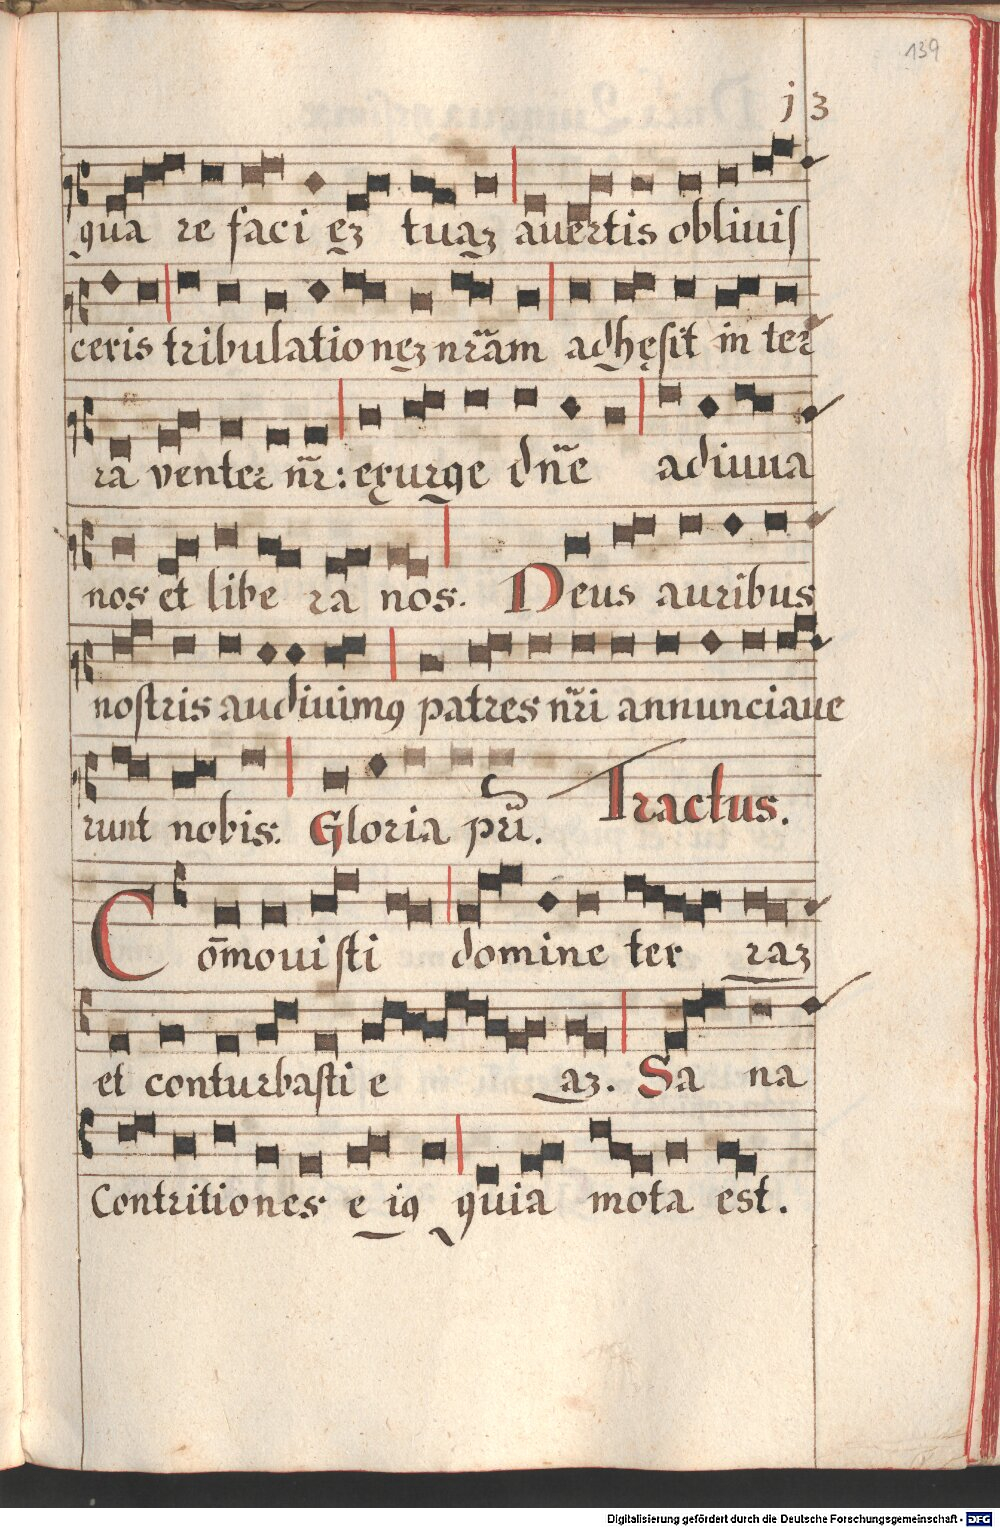 139
j3
qua re faci ęʒ tuaʒ auertis obliuiſ
ceris tribulationęʒ nr̄am adhęſit in ter
ra venter nr̄: exurge dn̄e adiuua
nos et libe ra nos. Deus auribus
noſtris audiuimꝰ patres nr̄i annunciaue
runt nobis. Gloria pr̄i. Tractus.
Cōmouiſti domine ter raʒ
et conturbaſti e aʒ. Sa na
Contritiones e iꝰ quia mota est.
Digitalisierung gefördert durch die Deutsche Forschungsgemeinschaft - DFG